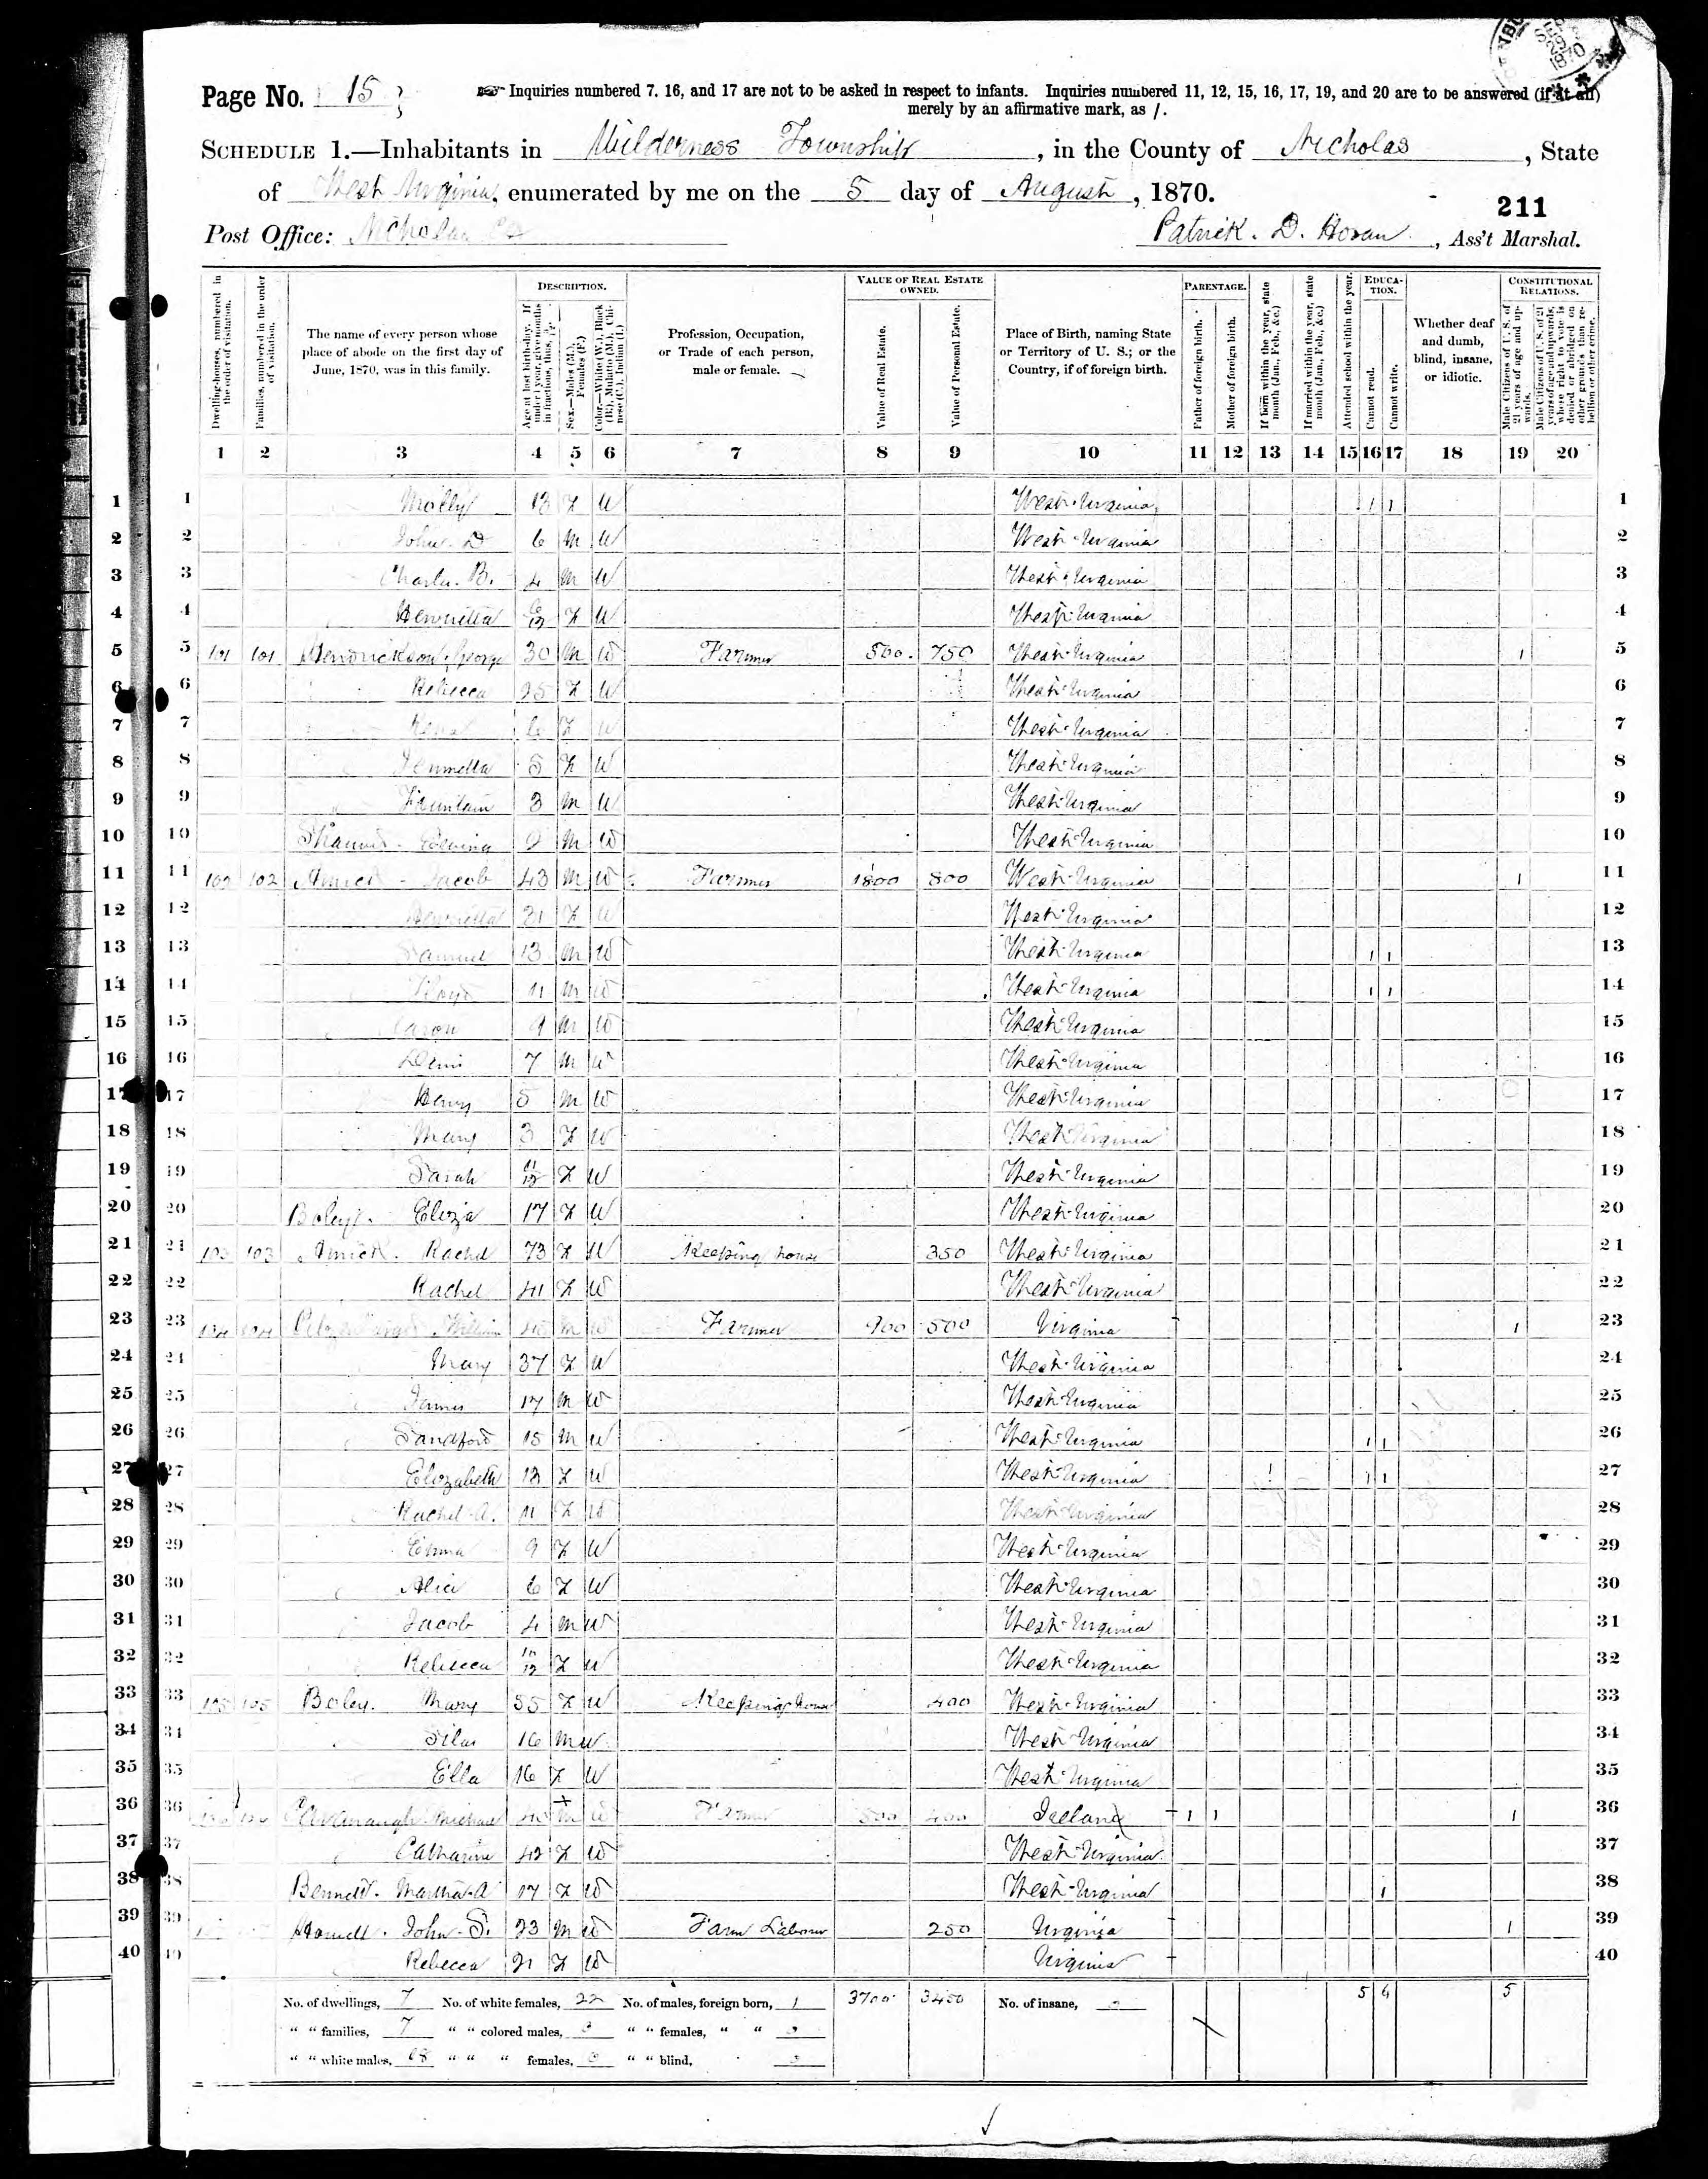 SEP 29 1870
Page No. 15 ☞ Inquiries numbered 7, 16, and 17 are not to be asked in respect to infants. Inquiries numbered 11, 12, 15, 16, 17, 19, and 20 are to be answered (if at all)
merely by an affirmative mark, as /.
SCHEDULE 1.—Inhabitants in Wilderness Township, in the County of Nicholas, State
of West Virginia, enumerated by me on the 5 day of August, 1870.
211
Post Office: Nicholas Patrick. D. Horan, Ass't Marshal.
Dwelling-houses, numbered in the order of visitation.
Families, numbered in the order of visitation.
The name of every person whose place of abode on the first day of June, 1870, was in this family.
DESCRIPTION.
Age at last birth-day. If under 1 year, give months in fractions, thus,
Sex.—Males (M.), Females (F.)
Color.—White (W.), Black (B.), Mulatto (M.), Chinese (C.), Indian (I.)
Profession, Occupation, or Trade of each person, male or female.
VALUE OF REAL ESTATE OWNED.
Value of Real Estate.
Value of Personal Estate.
Place of Birth, naming State or Territory of U. S.; or the Country, if of foreign birth.
PARENTAGE.
Father of foreign birth.
Mother of foreign birth.
If born within the year, state month (Jan., Feb., &c.)
If married within the year, state month (Jan., Feb., &c.)
Attended school within the year.
EDUCATION.
Cannot read.
Cannot write.
Whether deaf and dumb, blind, insane, or idiotic.
CONSTITUTIONAL RELATIONS.
Male Citizens of U. S. of 21 years of age and upwards.
Male Citizens of U. S. of 21 years of age and upwards, where right to vote is denied or abridged on other grounds than rebellion or other crime.
1 2 3 4 5 6 7 8 9 10 11 12 13 14 15 16 17 18 19 20
1 1 Molly 13 F W West Virginia / / 1
2 2 John. D 6 M W West Virginia 2
3 3 Charles. B. 4 M W West Virginia 3
4 4 Henrietta F W West Virginia 4
5 5 101 101 Hendrickson George 30 M W Farmer 500. 750 West Virginia / 5
6 6 Rebecca 25 F W West Virginia 6
7 7 6 F W West Virginia 7
8 8 5 F W West Virginia 8
9 9 Fountain 3 M W West Virginia 9
10 10 M W West Virginia 10
11 11 102 102 Amick - Jacob 43 M W Farmer 1800 800 West Virginia / 11
12 12 Henrietta 31 F W West Virginia 12
13 13 Samuel 13 M W West Virginia / / 13
14 14 11 M W West Virginia / / 14
15 15 Aaron 9 M W West Virginia 15
16 16 7 M W West Virginia 16
17 17 Henry 5 M W West Virginia 17
18 18 Mary 3 F W West Virginia 18
19 19 Sarah 11/12 F W West Virginia 19
20 20 Eliza 17 F W West Virginia 20
21 21 103 103 Amick. Rachel 73 F W Keeping house 350 West Virginia 21
22 22 Rachel 41 F W West Virginia 22
23 23 104 104 William M W Farmer 900 500 Virginia / 23
24 24 Mary 37 F W West Virginia 24
25 25 James 17 M W West Virginia 25
26 26 Sandford 15 M W West Virginia / / 26
27 27 Elizabeth 13 F W West Virginia / / 27
28 28 Rachel A. 11 F W West Virginia 28
29 29 Emma 9 F W West Virginia 29
30 30 Alice 6 F W West Virginia 30
31 31 Jacob 4 M W West Virginia 31
32 32 Rebecca 10/12 F W West Virginia 32
33 33 105 105 Boley. Mary 55 F W Keeping house 400 West Virginia 33
34 34 Silas 16 M W West Virginia 34
35 35 Ella 16 F W West Virginia 35
36 36 106 106 Michael M W Farmer 500 400 Ireland / / / 36
37 37 Catharine 42 F W West Virginia 37
38 38 Bennett. Martha A 17 F W West Virginia / 38
39 39 John S. 23 M W Farm Laborer 250 Virginia / 39
40 40 Rebecca 21 F W Virginia 40
No. of dwellings, 7 No. of white females, 22 No. of males, foreign born, 1 3700 3450 No. of insane, 5 6 5
" " families, 7 " " colored males, 0 " " females, " "
" " white males, 18 " " " females, 0 " " blind,